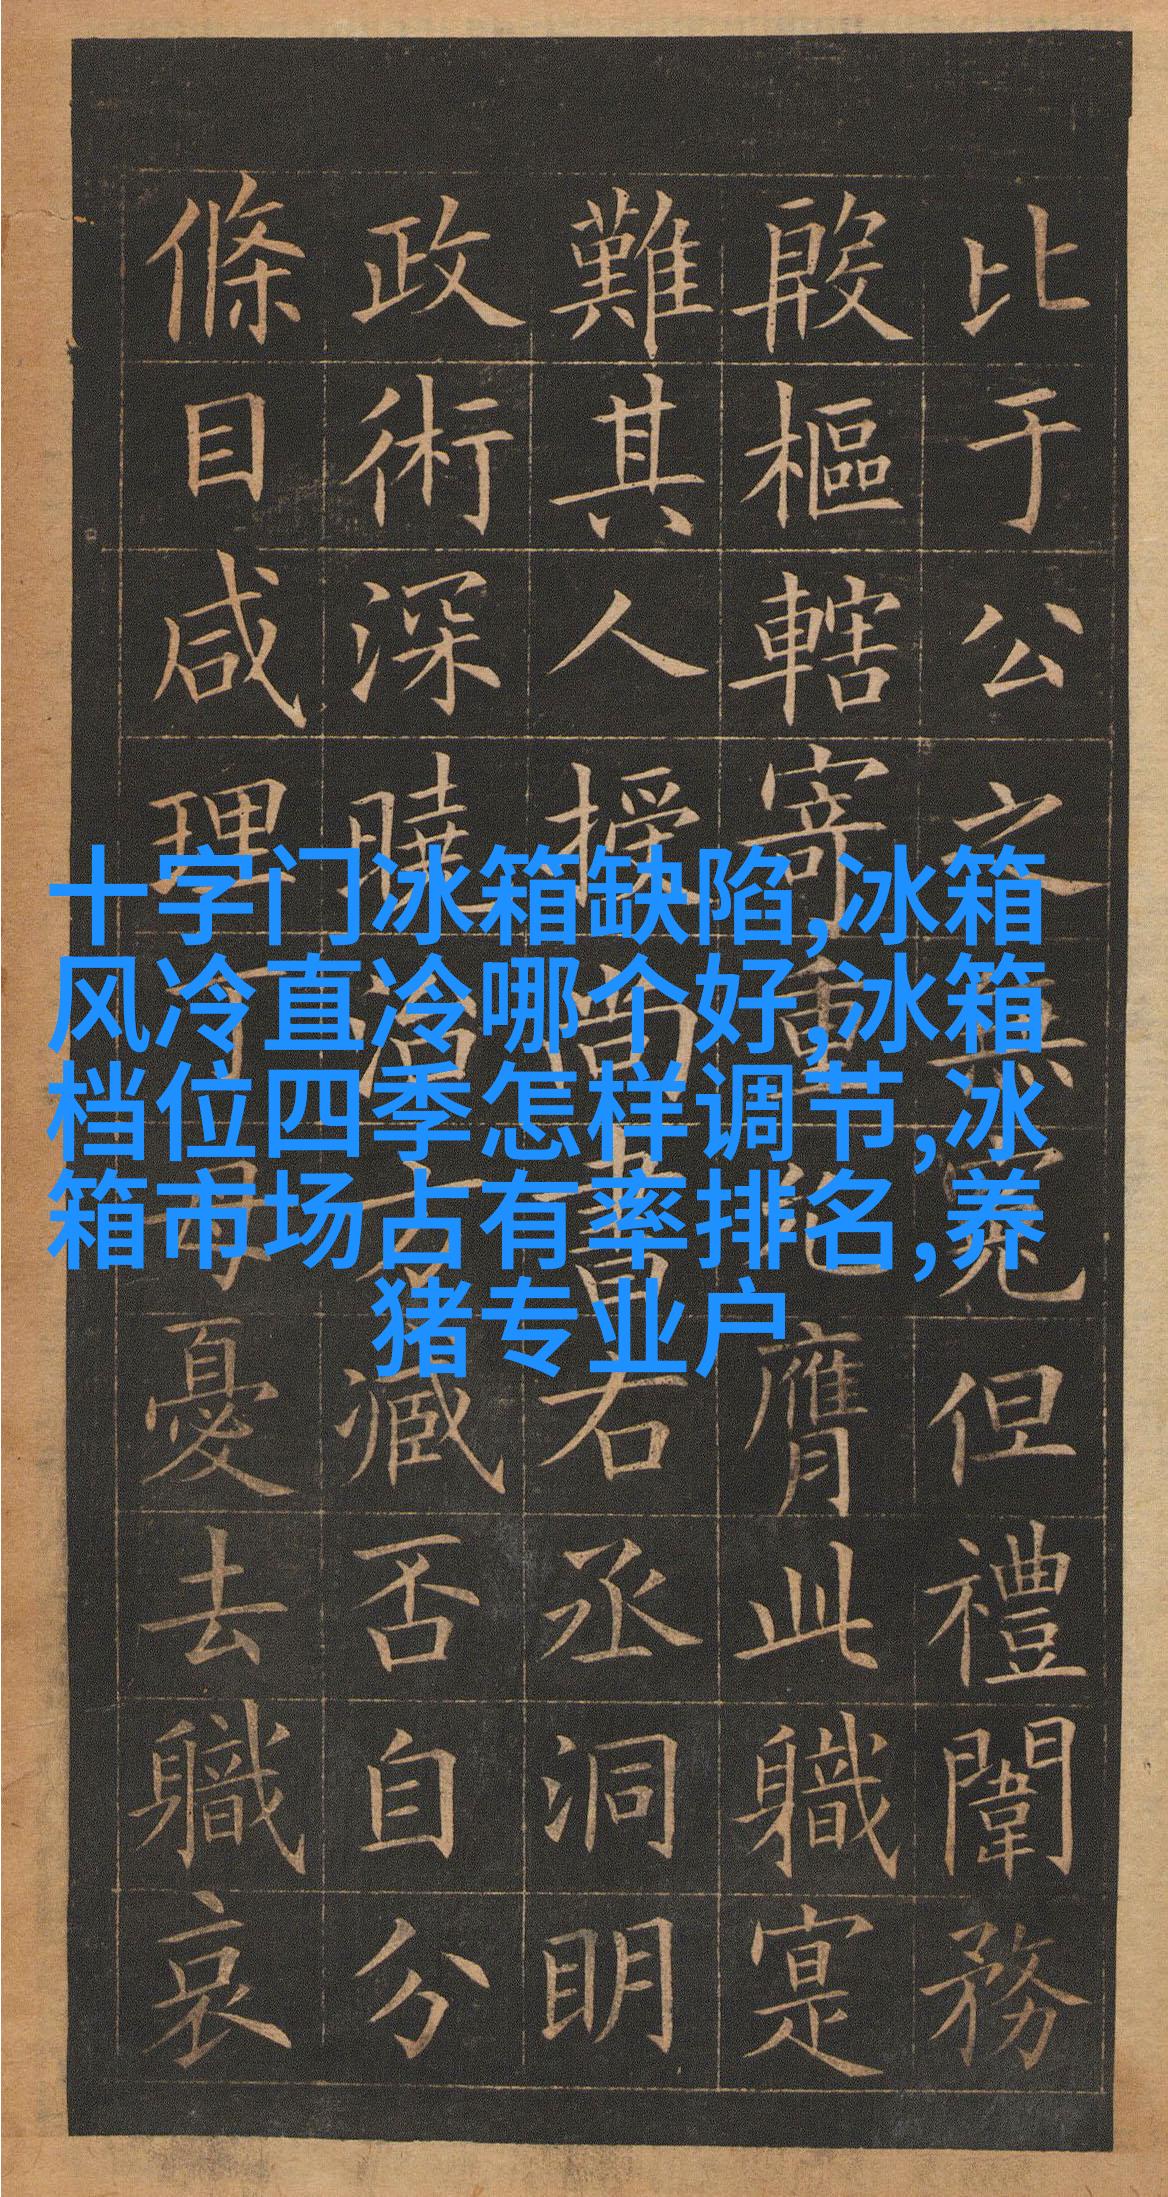 十字门冰箱缺陷,冰箱
风冷直冷哪个好,冰箱
档位四季怎样调节,冰
箱市场占有率排名,养
猪专业户
比于公之無冤但禮闈務
殷樞轄寄重膺此職寔
難其人授尚書右丞洞明
政術深曉治方臧否自分
條目咸理丁母憂去職哀